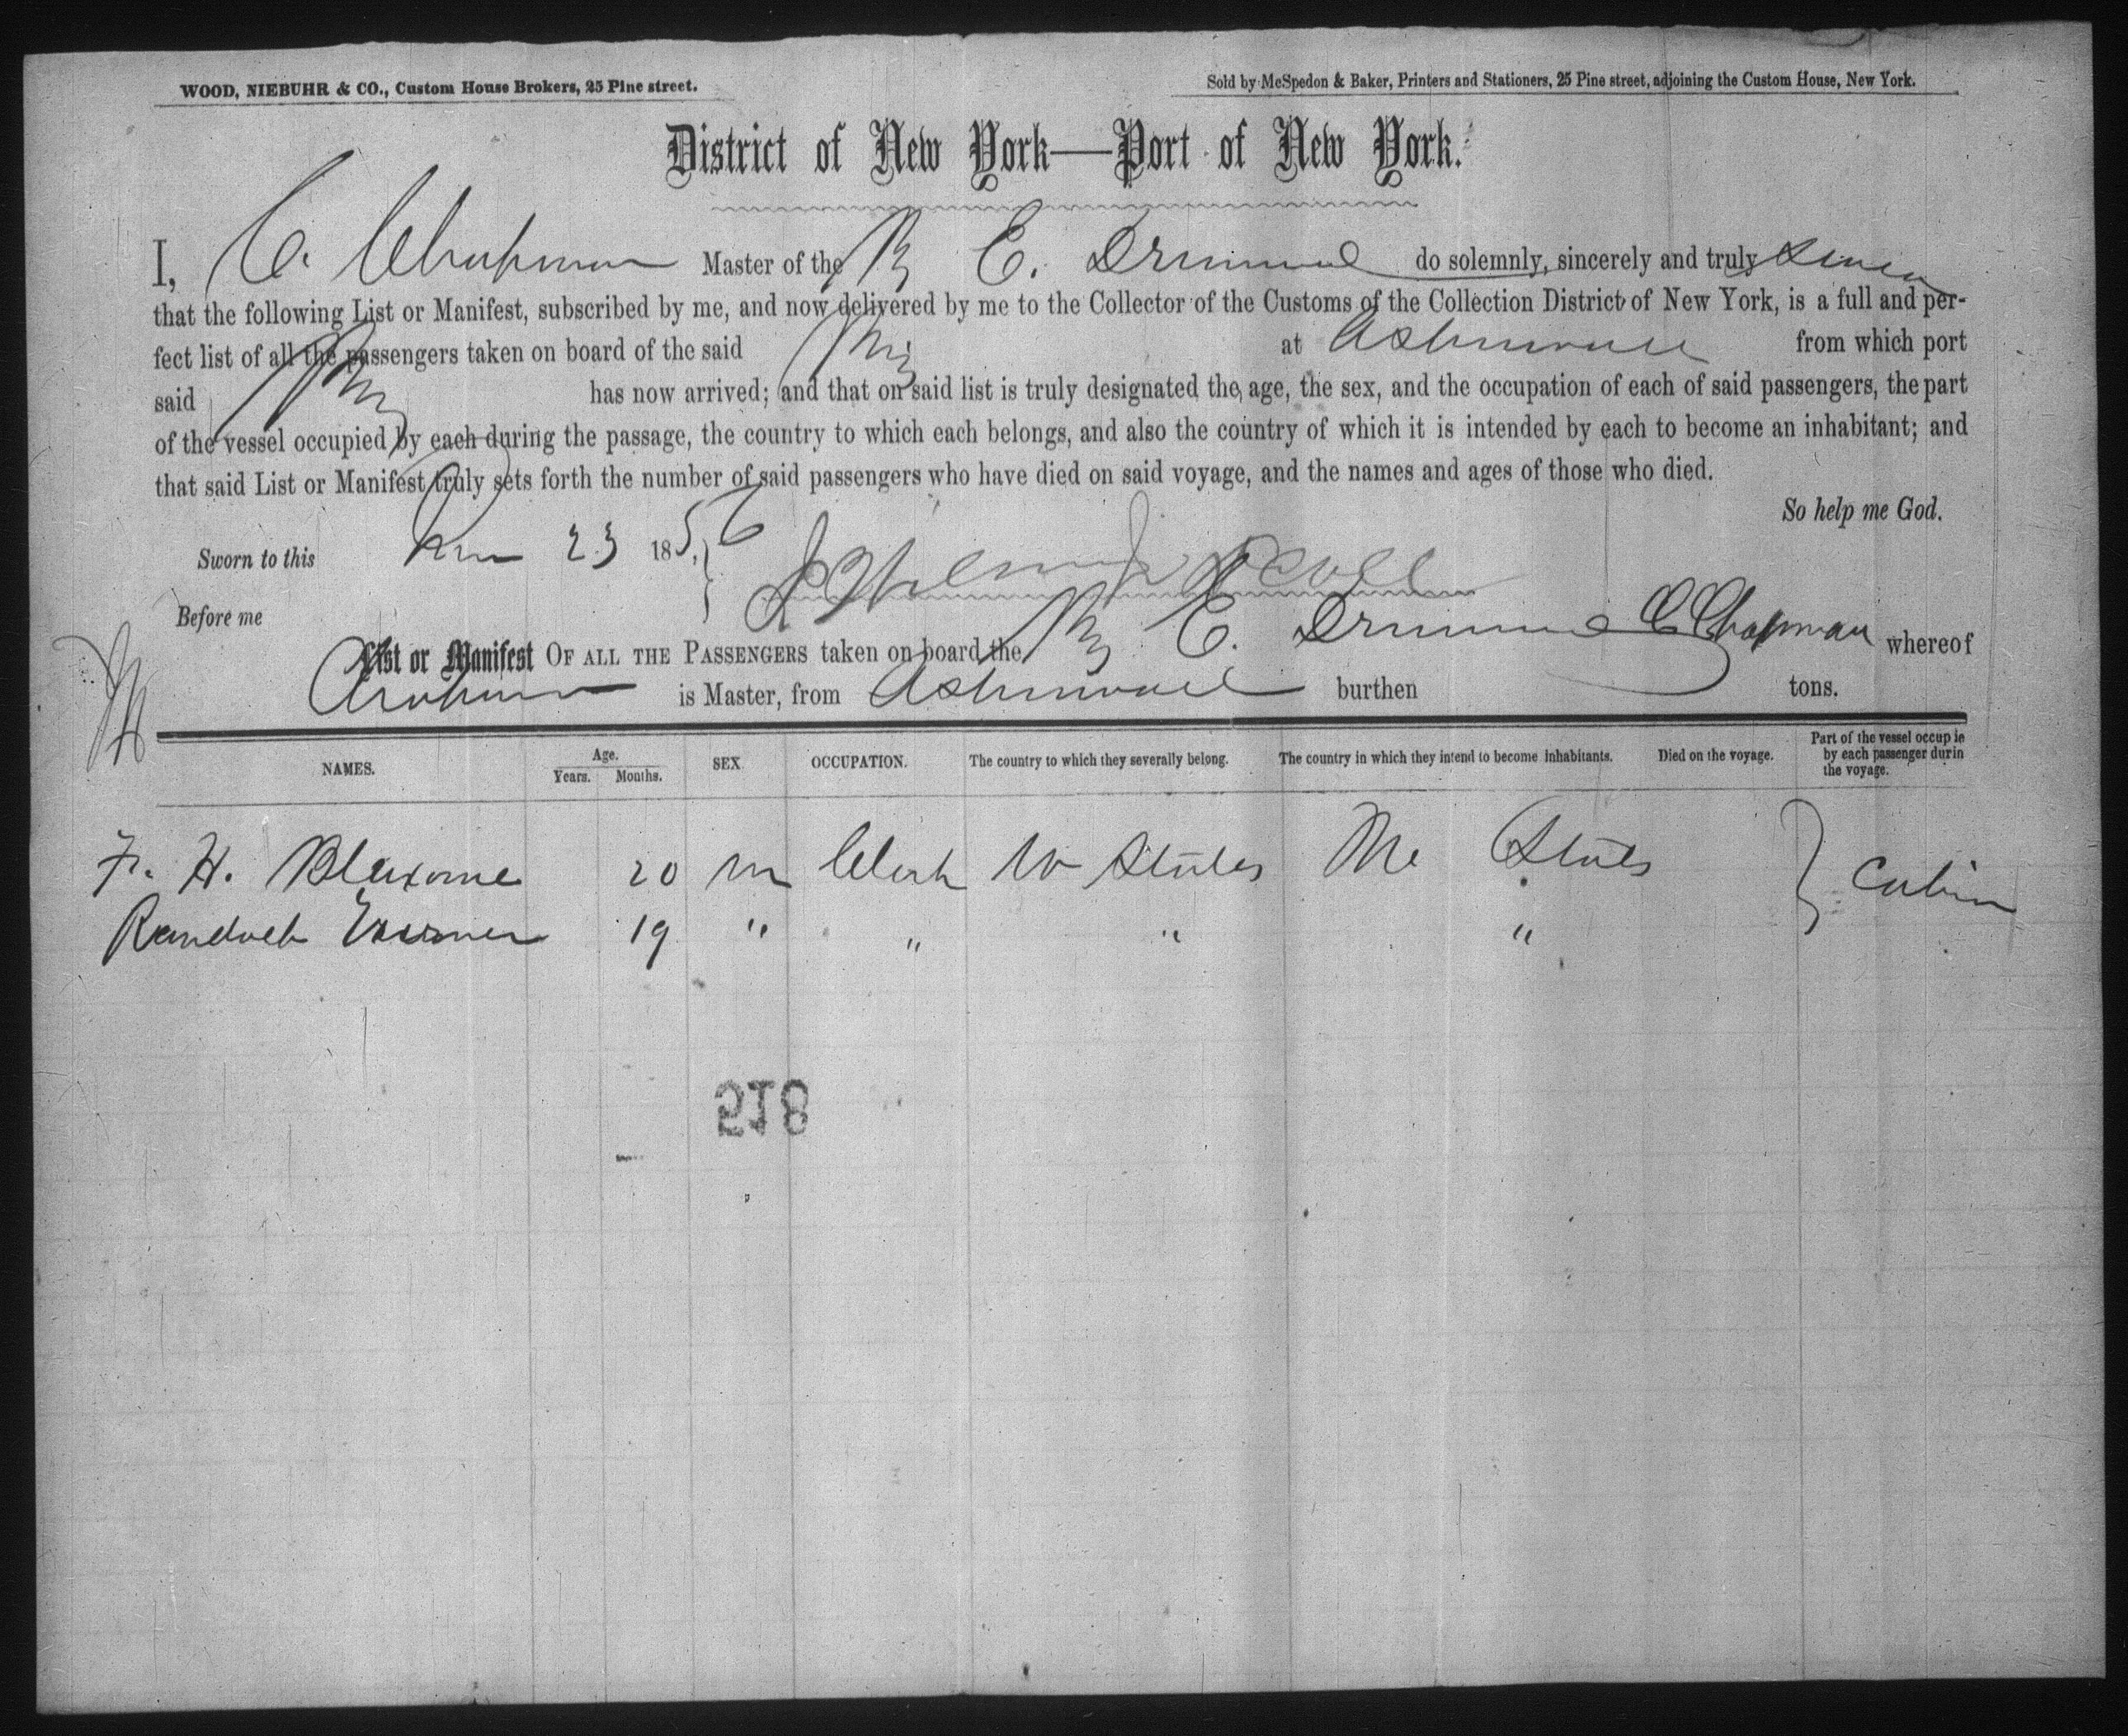 WOOD, NIEBUHR & CO., Custom House Brokers, 25 Pine street.
Sold by McSpedon & Baker, Printers and Stationers, 25 Pine street, adjoining the Custom House, New York.
District of New York—Port of New York.
I, C. Chapman Master of the Brig E. Drummond do solemnly, sincerely and truly swear
that the following List or Manifest, subscribed by me, and now delivered by me to the Collector of the Customs of the Collection District of New York, is a full and per-
fect list of all the passengers taken on board of the said Brig at Aspinwall from which port
said Brig has now arrived; and that on said list is truly designated the age, the sex, and the occupation of each of said passengers, the part
of the vessel occupied by each during the passage, the country to which each belongs, and also the country of which it is intended by each to become an inhabitant; and
that said List or Manifest truly sets forth the number of said passengers who have died on said voyage, and the names and ages of those who died.
So help me God.
Sworn to this 23 1856
Before me
C Chapman
List or Manifest OF ALL THE PASSENGERS taken on board the Brig E. Drummond whereof
Chapman is Master, from Aspinwall burthen tons.
NAMES. Age. Years. Months. SEX OCCUPATION. The country to which they severally belong. The country in which they intend to become inhabitants. Died on the voyage. Part of the vessel occup ie by each passenger durin the voyage.
H. Blaxome 20 m Clerk U States States Cabin
19 " " " "
518